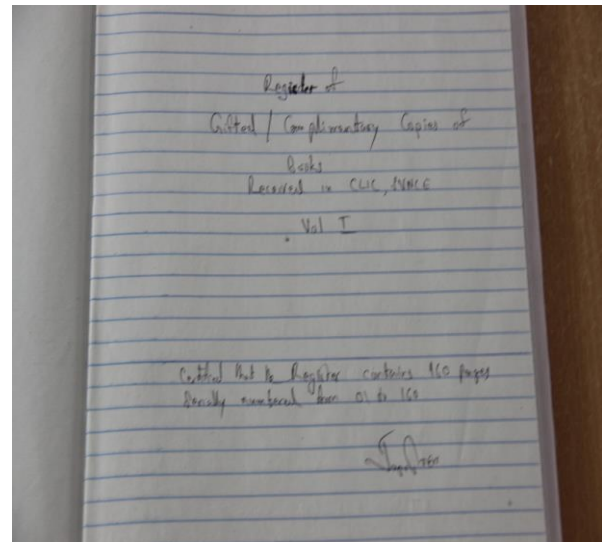 Register of
Gifted / Complimentary Copies of
Books
Received in CLIC,
Vol I
Certified that the Register contains 160 pages
Serially numbered from 01 to 160